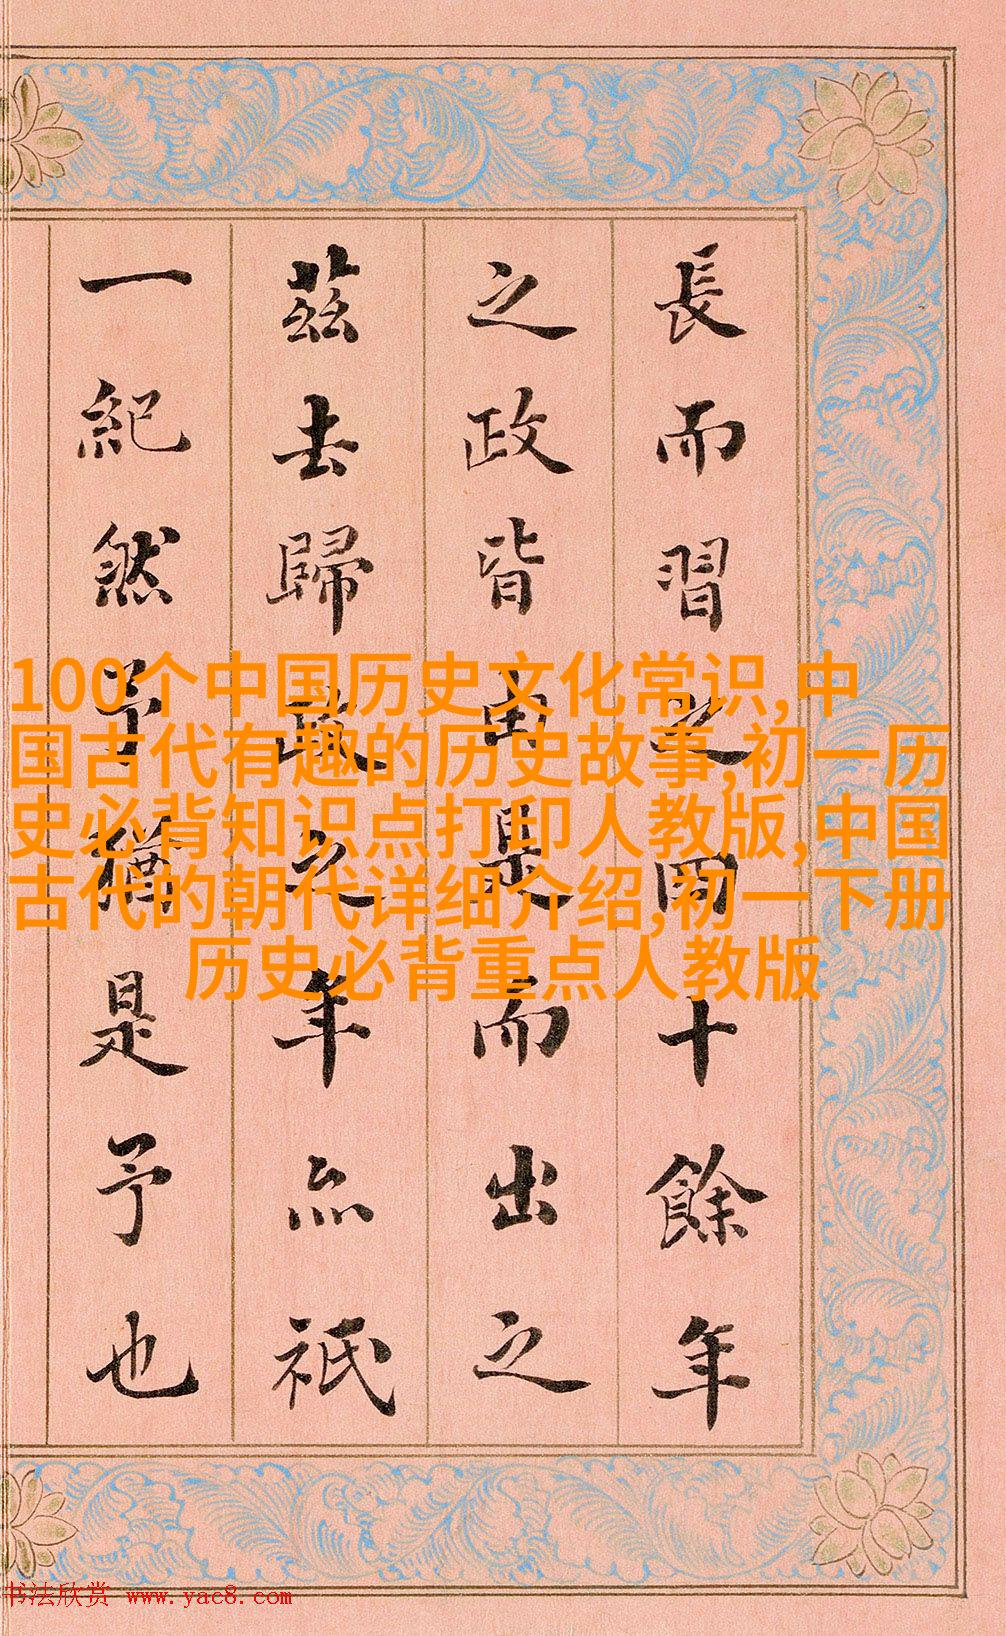 長而習之國十餘年
之政皆由是而出之
茲去歸政之年亦祇
一紀然予猶是予也
100个中国历史文化常识,中
国古代有趣的历史故事,初一历
史必背知识点打印人教版,中国
古代的朝代详细介绍,初一下册
历史必背重点人教版
书法欣赏 www.yac8.com